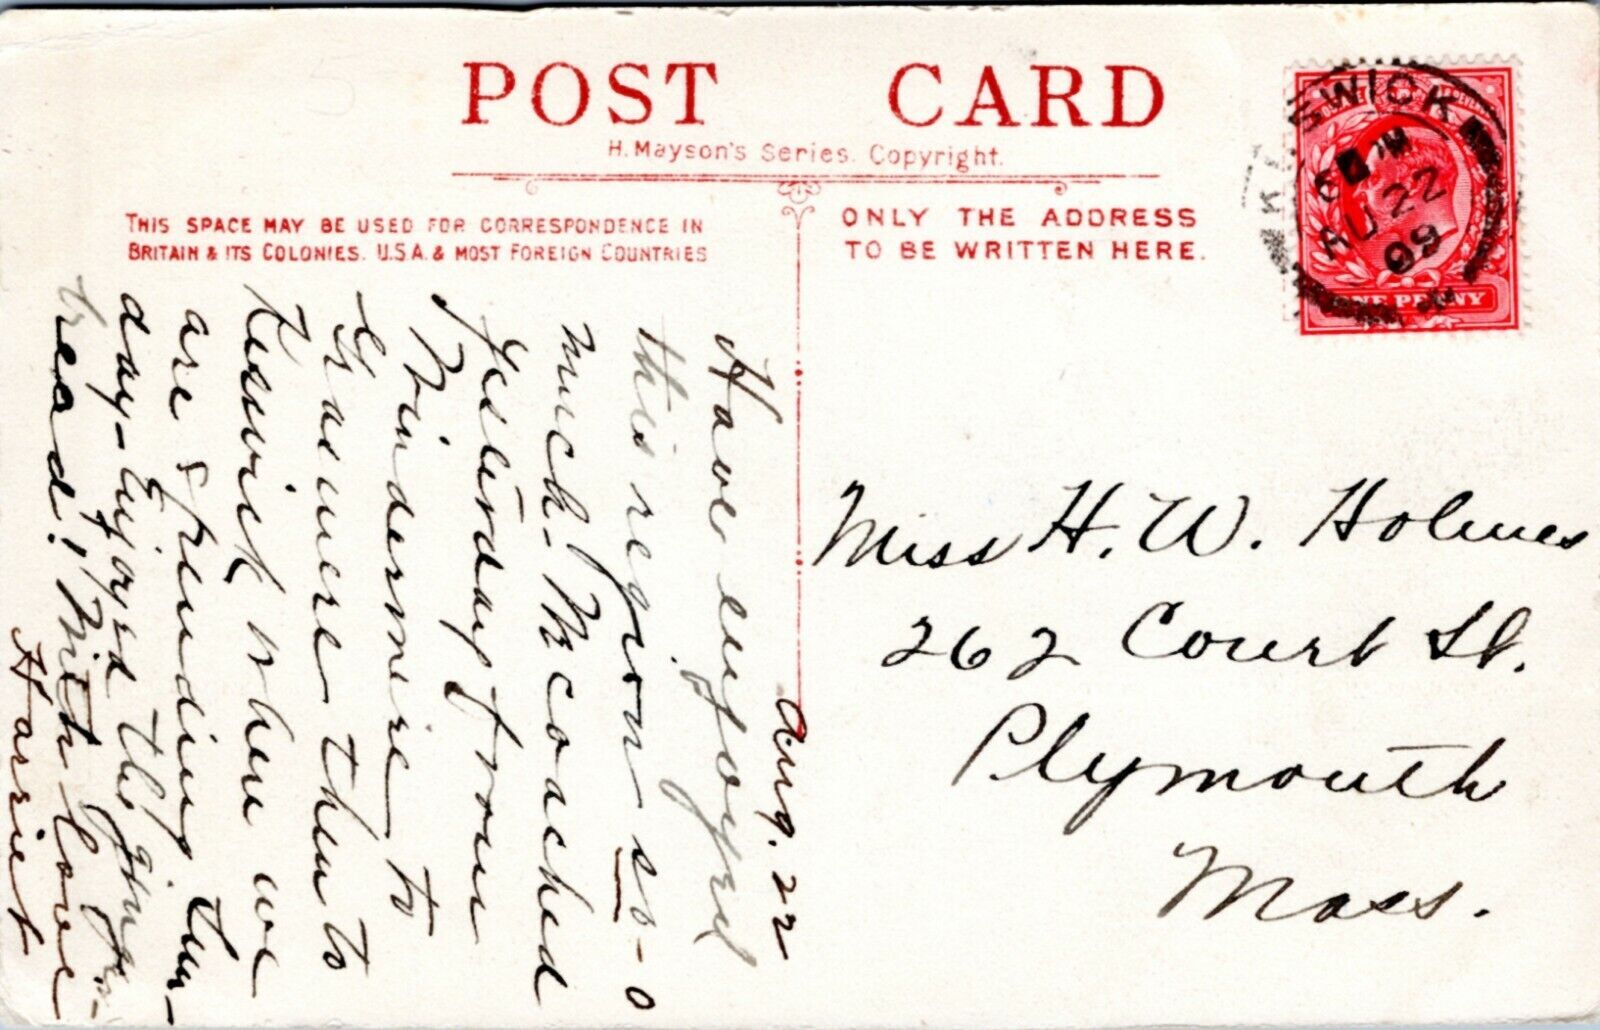 POST CARD
H. Mayson's Series. Copyright.
THIS SPACE MAY BE USED FOR CORRESPONDENCE IN
BRITAIN & ITS COLONIES. U.S.A. & MOST FOREIGN COUNTRIES
ONLY THE ADDRESS
TO BE WRITTEN HERE.
KESWICK
PM
AU 22
09
ONE PENNY
Aug. 22
Have enjoyed
this region so-o
much. We coached
yesterday from
Windermere to
Grasmere then to
Keswick where we
are spending Sun-
day - Enjoyed the ginger-
bread! With love
Harriet
Miss H. W. Holmes
262 Court St.
Plymouth
Mass.